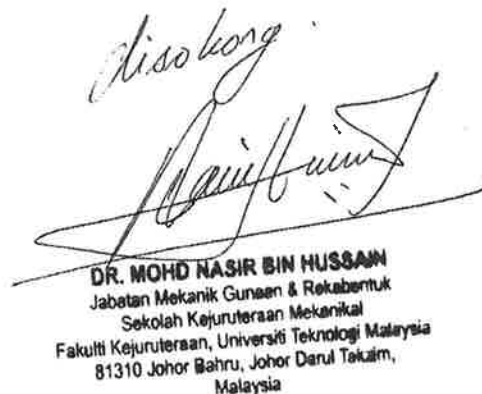 disokong.
DR. MOHD NASIR BIN HUSSAIN
Jabatan Mekanik Gunaan & Rekabentuk
Sekolah Kejuruteraan Mekanikal
Fakulti Kejuruteraan, Universiti Teknologi Malaysia
81310 Johor Bahru, Johor Darul Takzim,
Malaysia